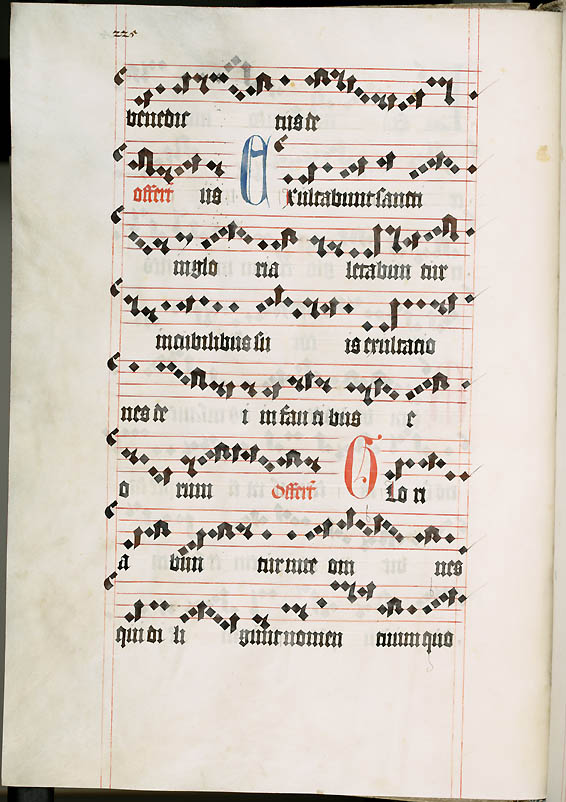 225
benedic tus de
offert us Exultabunt sancti
in glo ria letabun tur
in cubilibus su is exultacio
nes de i in fau ci bus e
o rum Offert Glo ri
a bun tur in te om nes
qui di li gunt nomen tuum quo